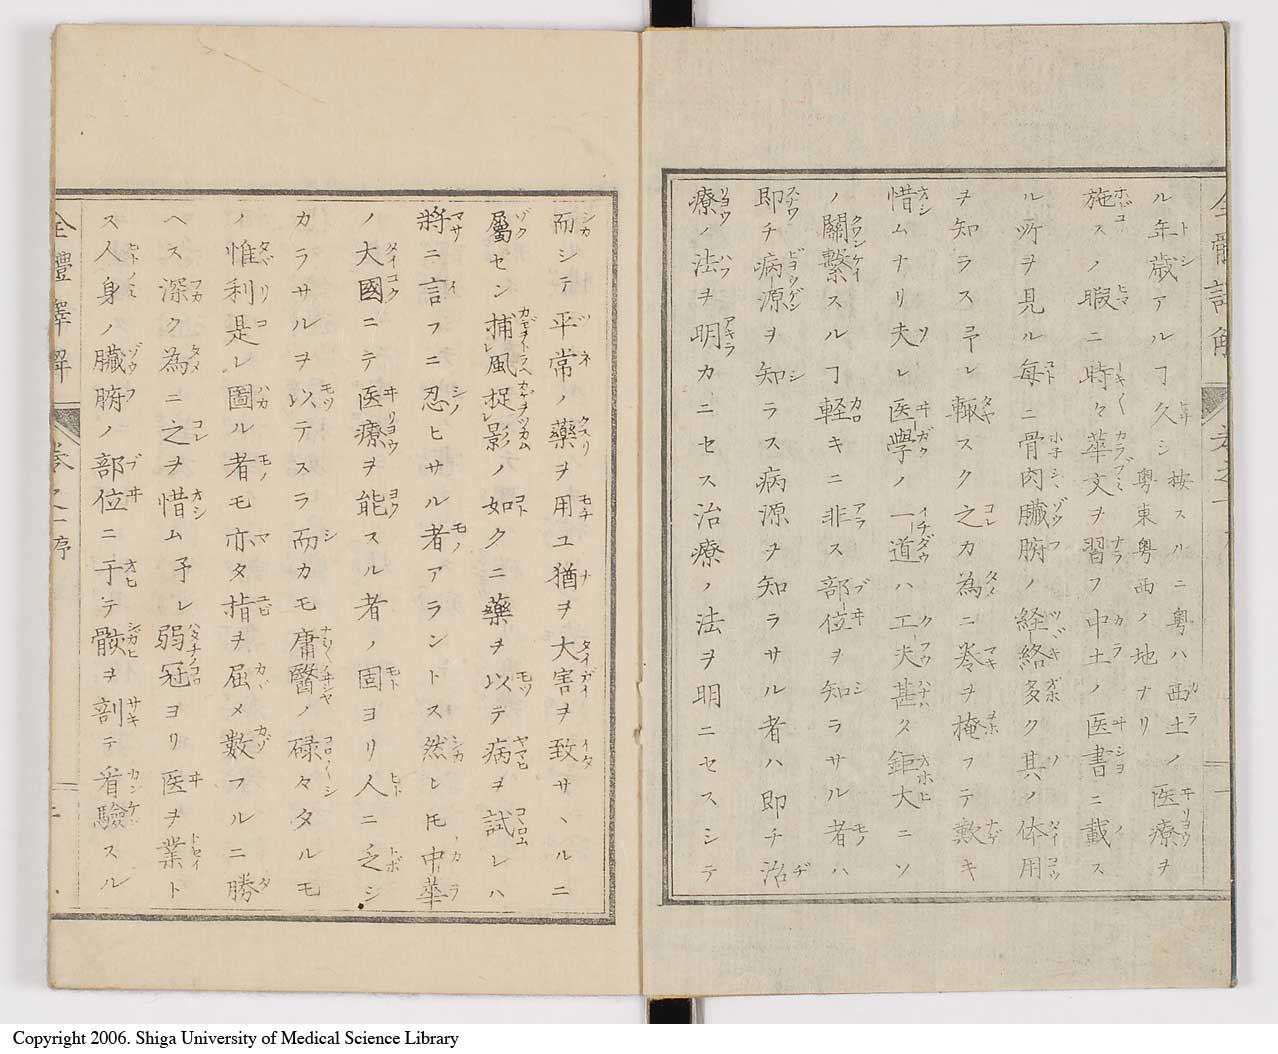 ル年歳アルヿ久シ 按スルニ粤ハ西土ノ医療ヲ
粤東粤西ノ地ナリ
施スノ暇ニ時々華文ヲ習フ中土ノ医書ニ載ス
ル所ヲ見ル毎ニ骨肉臓腑ノ経絡多ク其ノ体用
ヲ知ラス予レ輙スク之カ為ニ巻ヲ掩フテ歎キ
惜ムナリ夫レ医學ノ一道ハ工夫甚タ鉅大ニソ
ノ關繫スルヿ軽キニ非ス部位ヲ知ラサル者ハ
即チ病源ヲ知ラス病源ヲ知ラサル者ハ即チ治
療ノ法ヲ明カニセス治療ノ法ヲ明ニセスシテ
而シテ平常ノ藥ヲ用ユ猶ヲ大害ヲ致サヽルニ
屬セン捕風捉影ノ如クニ藥ヲ以テ病ヲ試レハ
將ニ言フニ忍ヒサル者アラントス然レ𪜈中華
ノ大國ニテ医療ヲ能スル者ノ固ヨリ人ニ乏シ
カラサルヲ以テスラ而カモ庸醫ノ碌々タルモ
ノ惟利是レ圖ル者モ亦タ指ヲ屈メ數フルニ勝
ヘス深ク為ニ之ヲ惜ム予レ弱冠ヨリ医ヲ業ト
ス人身ノ臓腑ノ部位ニ于テ骸ヲ剖テ看驗スル
全體譯解 巻之一序
Copyright 2006. Shiga University of Medical Science Library